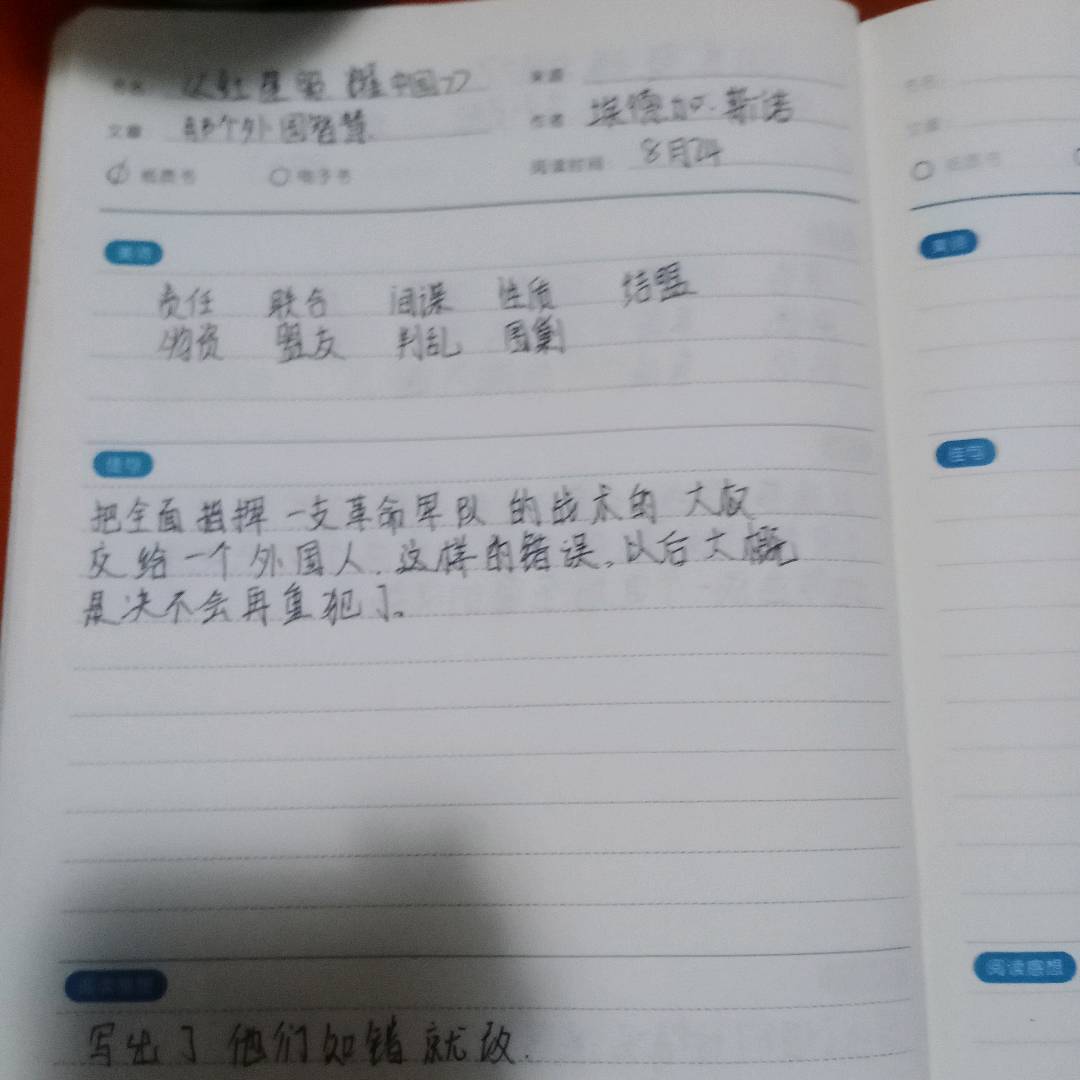 《红星照耀中国》
那个外国智囊
作者 埃德加·斯诺
纸质书 电子书 阅读时间 8月24
责任 联合 间谍 性质 结盟
物资 盟友 判乱 围剿
佳句
把全面指挥一支革命军队的战术的大权
交给一个外国人.这样的错误。以后大概
是决不会再重犯了。
写出了他们知错就改.
美词
佳句
阅读感想